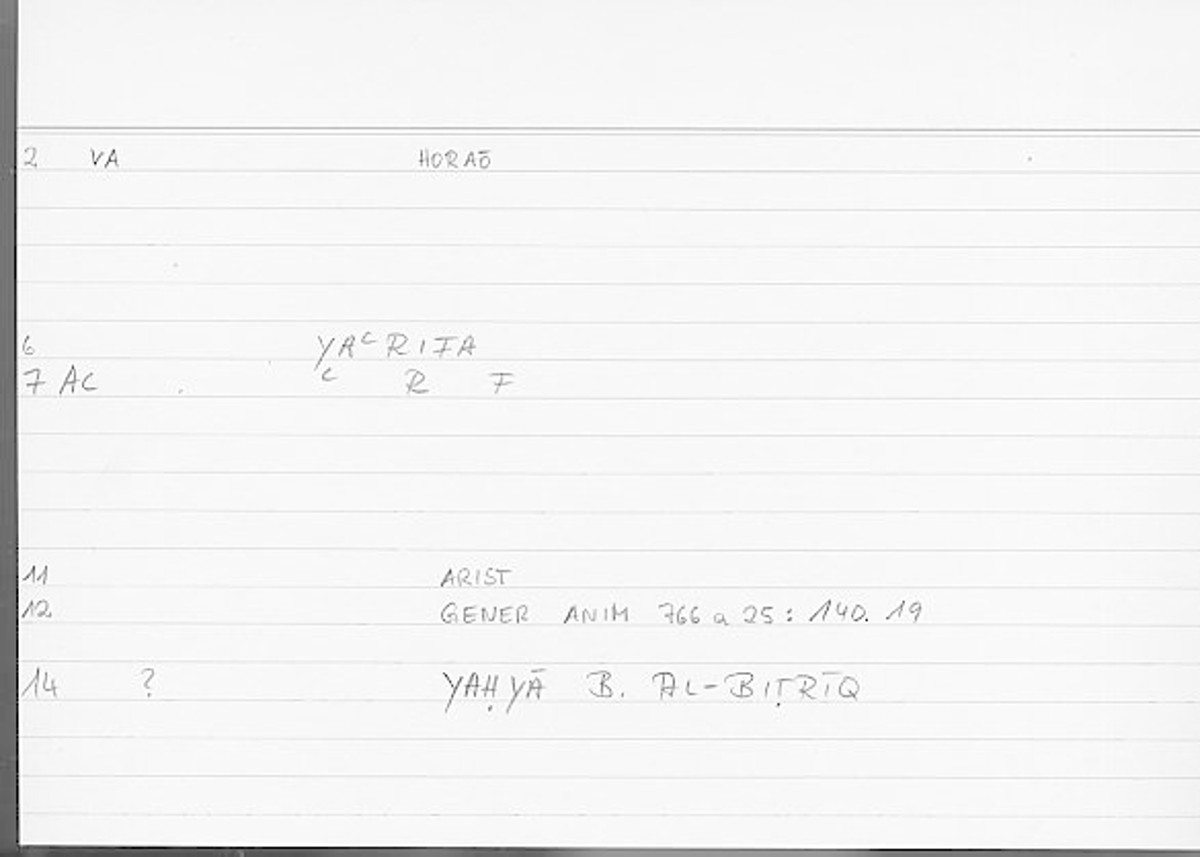 2 VA HORAŌ
6 YAᶜRIFA
7 AC ᶜ R F
11 ARIST
12 GENER ANIM 766 a 25 : 140. 19
14 ? YAḤYĀ B. AL-BIṬRĪQ